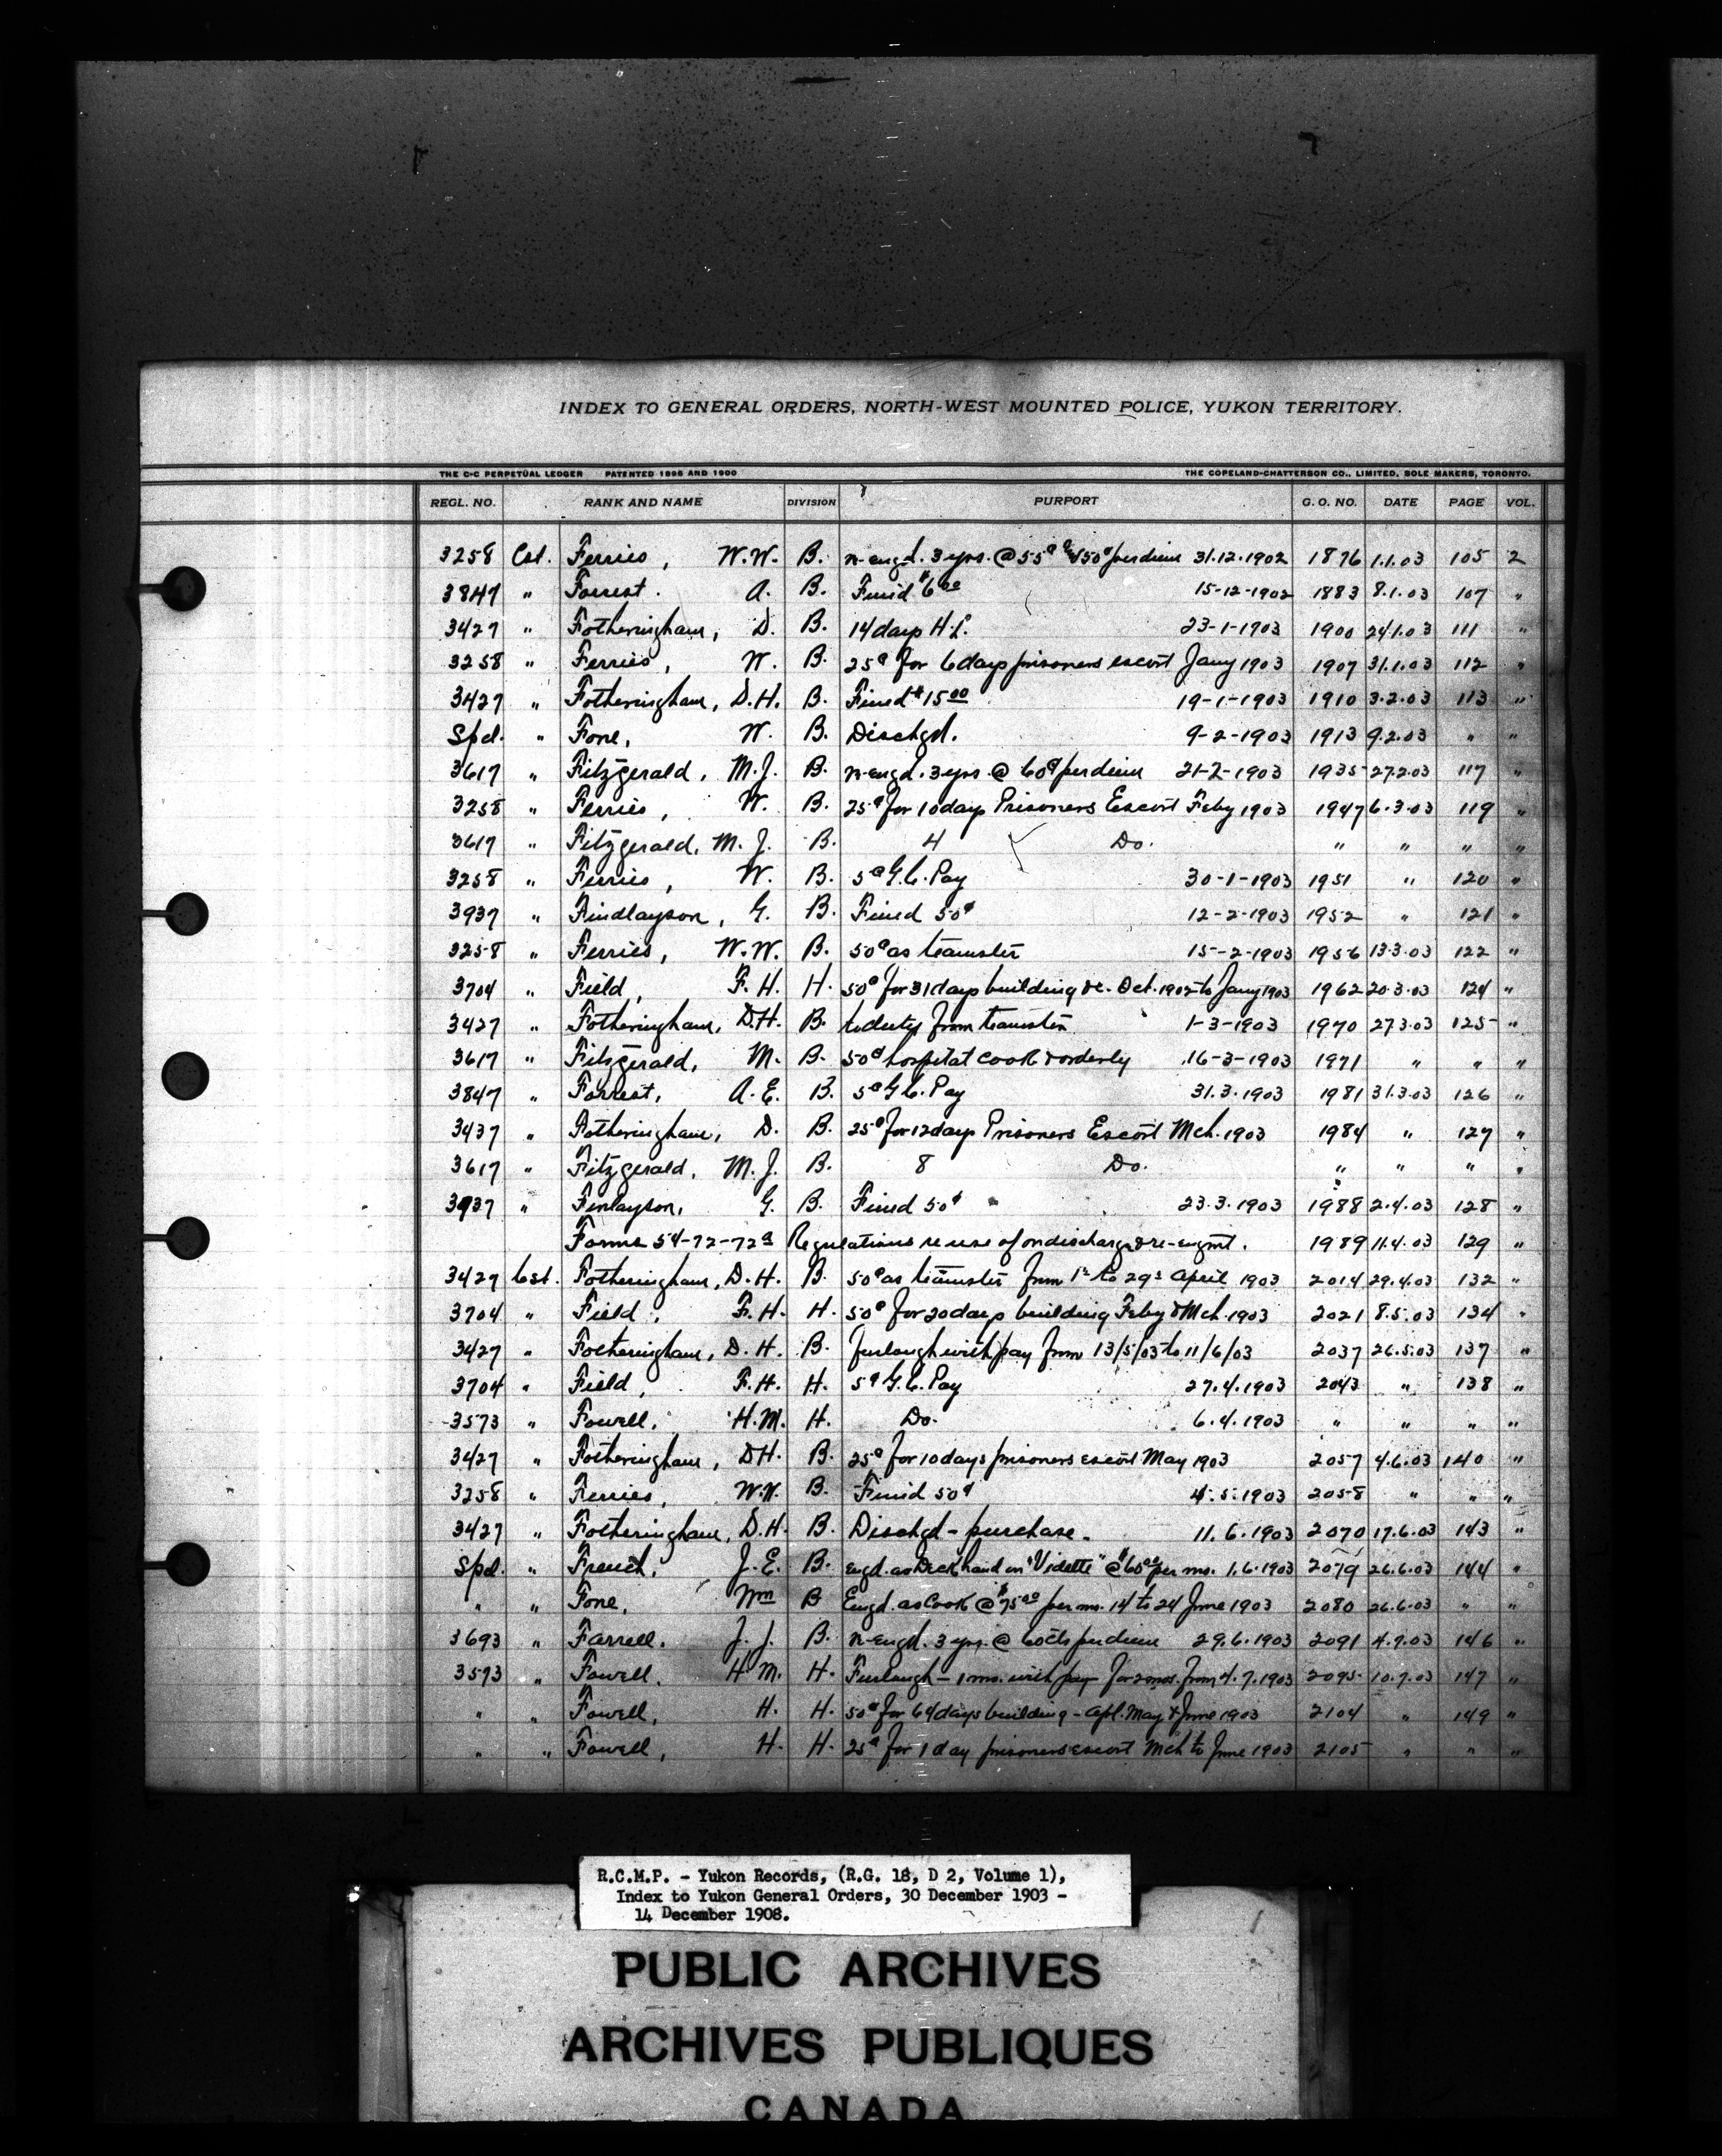 INDEX TO GENERAL ORDERS, NORTH-WEST MOUNTED POLICE, YUKON TERRITORY.
THE C-C PERPETUAL LEDGER PATENTED 1896 AND 1900 THE COPELAND-CHATTERSON CO., LIMITED, SOLE MAKERS, TORONTO.
REGL. NO. RANK AND NAME DIVISION PURPORT G. O. NO. DATE PAGE VOL.
3258 Cst. Ferries, W.W. B. re-engd. 3 yrs. @ 55¢ & 50¢ per diem 31.12.1902 1876 1.1.03 105 2
3847 " Forrest. A. B. Fined $6.00 15-12-1902 1883 8.1.03 107 "
3427 " Fotheringham, D. B. 14 days H.L. 23-1-1903 1900 24.1.03 111 "
3258 " Ferries, W. B. 25¢ for 6 days prisoners escort Jany 1903 1907 31.1.03 112 "
3427 " Fotheringham, D.H. B. Fined $15.00 19-1-1903 1910 3.2.03 113 "
Spcl. " Fone, W. B. Dischgd. 9-2-1903 1913 9.2.03 " "
3617 " Fitzgerald, M.J. B. re-engd. 3 yrs. @ 60¢ per diem 21-2-1903 1935 27.2.03 117 "
3258 " Ferries, W. B. 25¢ for 10 days Prisoners Escort Feby 1903 1947 6.3.03 119 "
3617 " Fitzgerald, M. J. B. 4 Do. " " " "
3258 " Ferries, W. B. 5¢ G.C. Pay 30-1-1903 1951 " 120 "
3937 " Findlayson, G. B. Fined 50¢ 12-2-1903 1952 " 121 "
3258 " Ferries, W.W. B. 50¢ as teamster 15-2-1903 1956 13.3.03 122 "
3704 " Field, F. H. H. 50¢ for 31 days building &c. Oct. 1902 to Jany 1903 1962 20.3.03 124 "
3427 " Fotheringham, D.H. B. to duty from teamster 1-3-1903 1970 27.3.03 125 "
3617 " Fitzgerald, M. B. 50¢ hospital cook & orderly 16-3-1903 1971 " " "
3847 " Forrest, A. E. B. 5¢ G.C. Pay 31.3.1903 1981 31.3.03 126 "
3437 " Fotheringham, D. B. 25¢ for 12 days Prisoners Escort Mch. 1903 1984 " 127 "
3617 " Fitzgerald, M. J. B. 8 Do. " " " "
3937 " Finlayson, G. B. Fined 50¢ 23.3.1903 1988 2.4.03 128 "
Forms 54-72-72a Regulations re use of on discharge & re-engmt. 1989 11.4.03 129 "
3427 Cst. Fotheringham, D.H. B. 50¢ as teamster from 1st to 29th April 1903 2014 29.4.03 132 "
3704 " Field, F. H. H. 50¢ for 20 days building Feby & Mch. 1903 2021 8.5.03 134 "
3427 " Fotheringham, D. H. B. furlough with pay from 13/5/03 to 11/6/03 2037 26.5.03 137 "
3704 " Field, F.H. H. 5¢ G.C. Pay 27.4.1903 2043 " 138 "
3573 " Fowell, H.M. H. Do. 6.4.1903 " " " "
3427 " Fotheringham, D.H. B. 25¢ for 10 days prisoners escort May 1903 2057 4.6.03 140 "
3258 " Ferries, W.W. B. Fined 50¢ 4.5.1903 2058 " " "
3427 " Fotheringham, D.H. B. Dischgd - purchase. 11.6.1903 2070 17.6.03 143 "
Spcl. " French, J.E. B. engd. as Deck hand on "Vidette" @ $60.00 per mo. 1.6.1903 2079 26.6.03 144 "
" " Fone, Wm B Engd. as Cook @ $75.00 per mo. 14 to 24 June 1903 2080 26.6.03 " "
3693 " Farrell. J. J. B. re-engd. 3 yrs. @ 60cts per diem 29.6.1903 2091 4.7.03 146 "
3573 " Fowell. H. M. H. Furlough - 1 mo. with pay for 2 mos. from 4.7.1903 2095 10.7.03 147 "
" " Fowell, H. H. 50¢ for 64 days building - Apl. May & June 1903 2104 " 149 "
" " Fowell, H. H. 25¢ for 1 day prisoners escort Mch to June 1903 2105 " " "
R.C.M.P. - Yukon Records, (R.G. 18, D 2, Volume 1),
Index to Yukon General Orders, 30 December 1903 -
14 December 1908.
PUBLIC ARCHIVES
ARCHIVES PUBLIQUES
CANADA